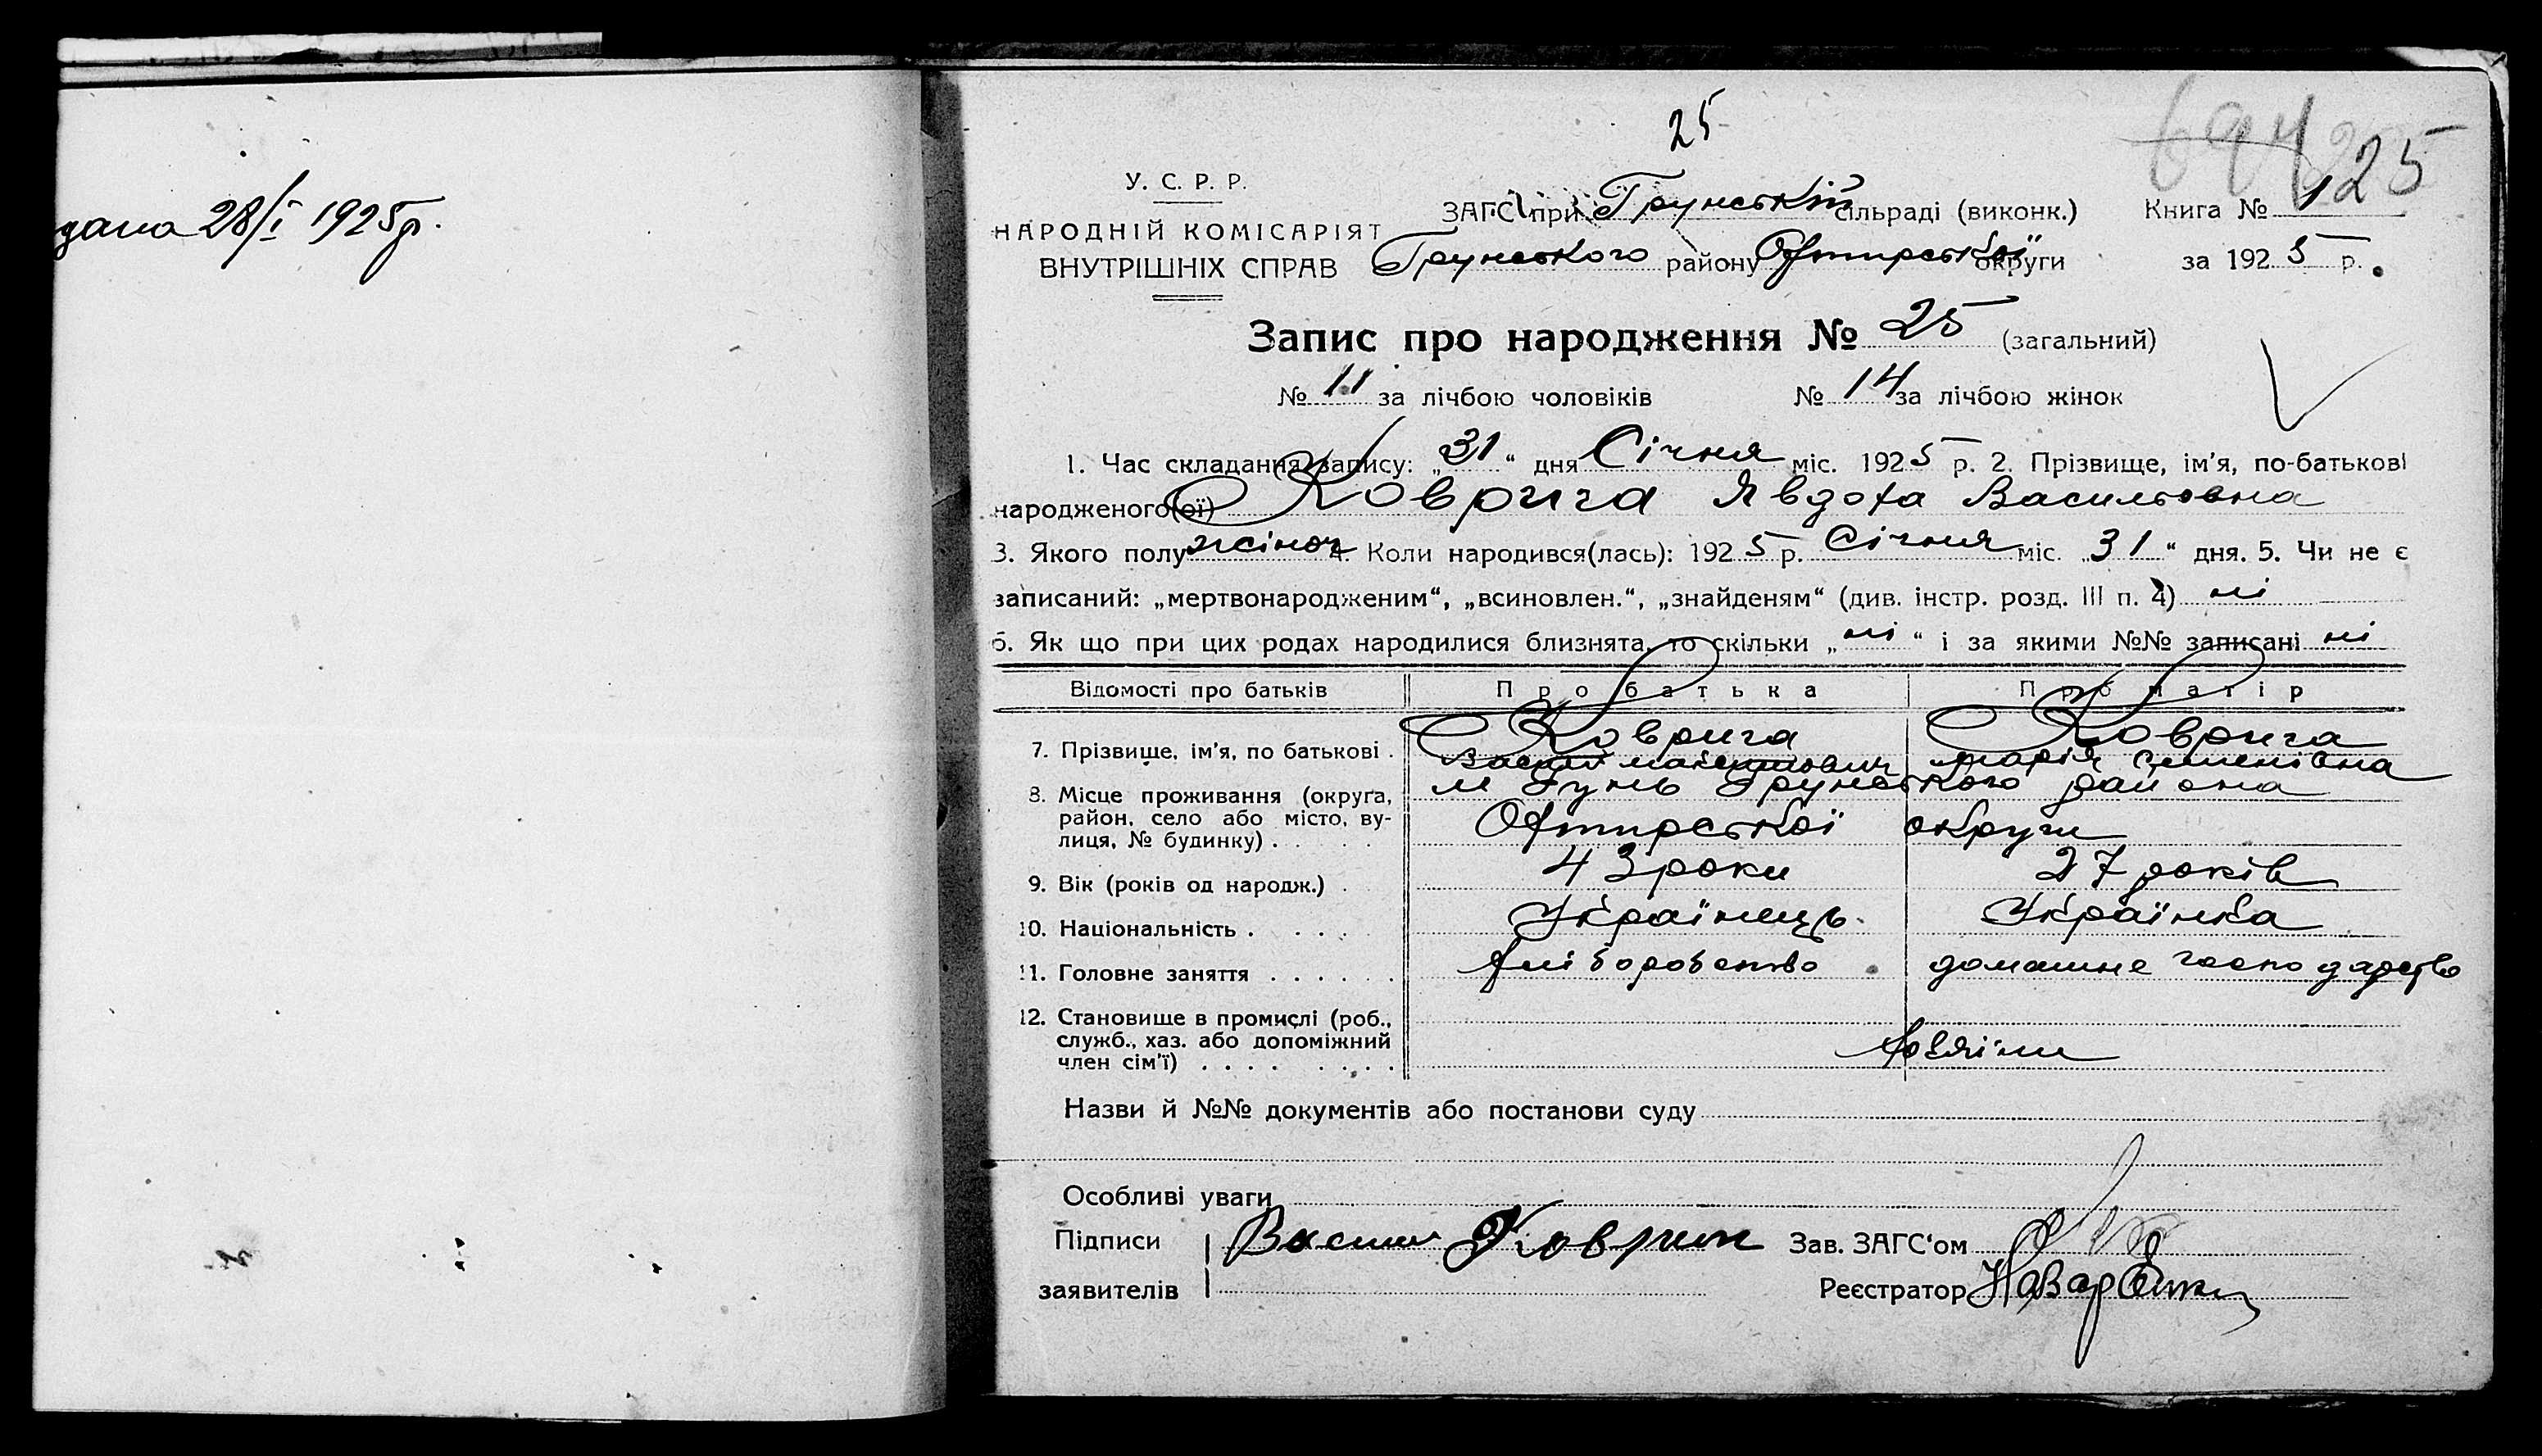 дана 28/I 1925 р.
25
694 125
У. С. Р. Р.
НАРОДНІЙ КОМІСАРІЯТ
ВНУТРІШНІХ СПРАВ
ЗАГС при Грунській сільраді (виконк.) Книга № 1
Грунського району Охтирської округи за 1925 р.
Запис про народження № 25 (загальний)
№ 11 за лічбою чоловіків № 14 за лічбою жінок
1. Час складання запису: „31“ дня Січня міс. 1925 р. 2. Прізвище, ім'я, по-батькові
народженого(ої) Коврига Явдоха Васильовна
3. Якого полу жіноч 4. Коли народився(лась): 1925 р. Січня міс. „31“ дня. 5. Чи не є
записаний: „мертвонародженим“, „всиновлен.“, „знайденям“ (див. інстр. розд. III п. 4) ні
6. Як що при цих родах народилися близнята, то скільки „ні“ і за якими №№ записані ні
Відомості про батьків Про батька Про матір
7. Прізвище, ім'я, по батькові . Коврига Коврига
Марія Семенівна
8. Місце проживання (округа, район, село або місто, вулиця, № будинку) . . . . . м Грунь Грунського района
Охтирської округи
9. Вік (років од народж.) . 43 роки 27 років
10. Національність . . . . . Українець Українка
11. Головне заняття . . . . . . хліборобство домашне господарство
12. Становище в промислі (роб.,
служб., хаз. або допоміжний
член сім'ї) . . . . . . . . хозяіни
Назви й №№ документів або постанови суду
Особливі уваги
Підписи Василь Коврига Зав. ЗАГС'ом
заявителів Реєстратор